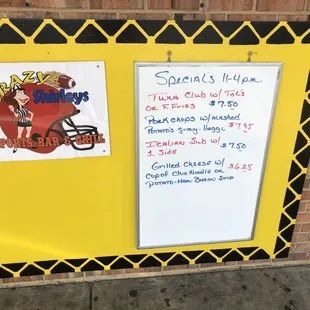 CRAZY
Shirleys
SPORTS BAR & GRILL
Specials 11-4pm
Tuna Club w/ Tots
or F.Fries $7.50
Pork chops w/ mashed
Potato's $7.95
Italian Sub w/ $7.50
1 Side
Grilled Cheese w/ $6.25
Cup of Chix Noodle or
Potato-Ham Bacon Soup